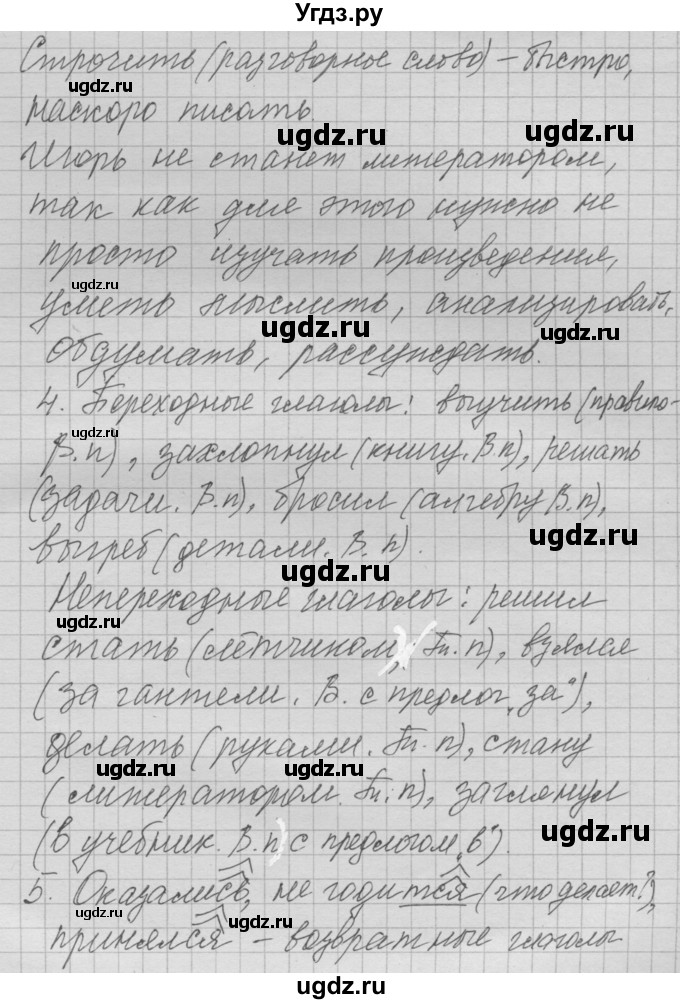 Угдз.ру
Строчить (разговорное слово) – быстро,
наскоро писать.
Игорь не станет литератором,
так как для этого нужно не
просто изучать произведения,
уметь мыслить, анализировать,
обдумать, рассуждать.
4. Переходные глаголы: выучить (правило-
В.п), захлопнул (книгу. В.п), решать
(задачи. В.п), бросил (алгебру В.п),
выгреб (детали. В.п).
Непереходные глаголы: решил
стать (лётчиком, Тв.п), взялся
(за гантели. В. с предлог „за"),
делать (руками. Тв.п), стану
(литератором. Тв.п), заглянул
(в учебник. В.п) с предлогом „в").
5. Оказались, не годится (что делает?),
принялся – возвратные глаголы
ugdz.ru